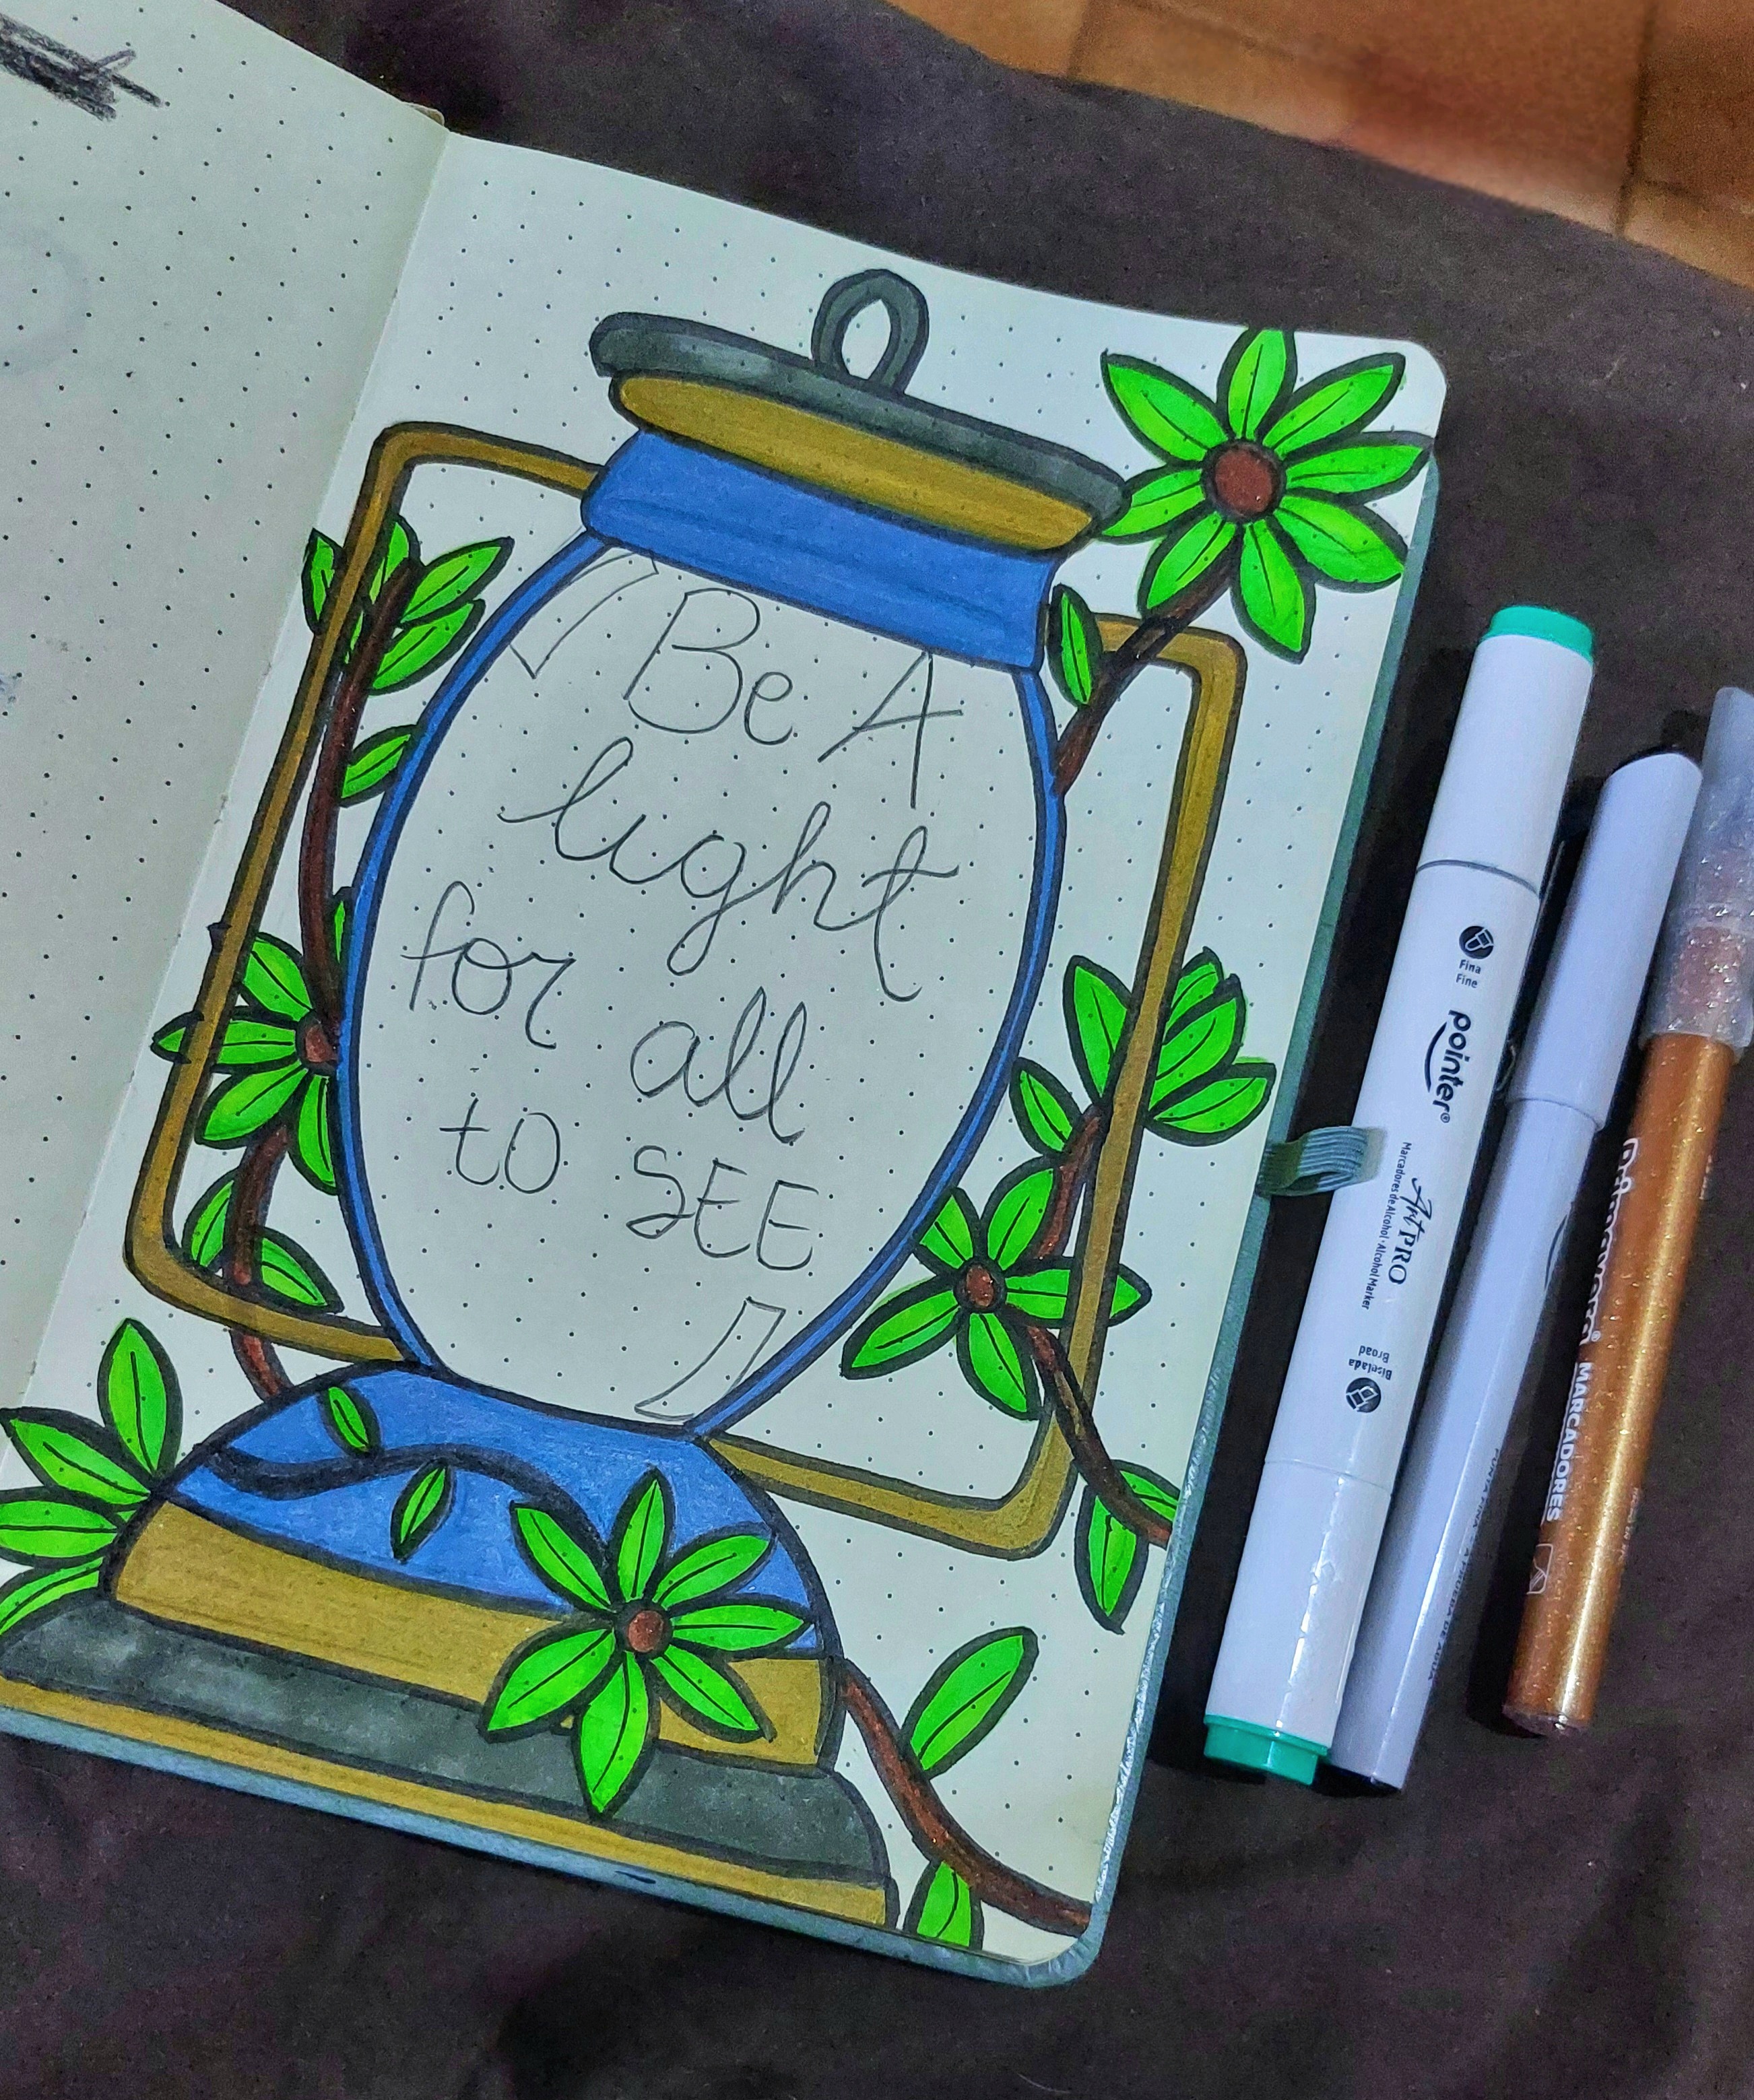 Be A
light
for all
to SEE
Fina
Fine
pointer®
Art PRO
Marcadores de Alcohol · Alcohol Marker
Biselada
Broad
MARCADORES